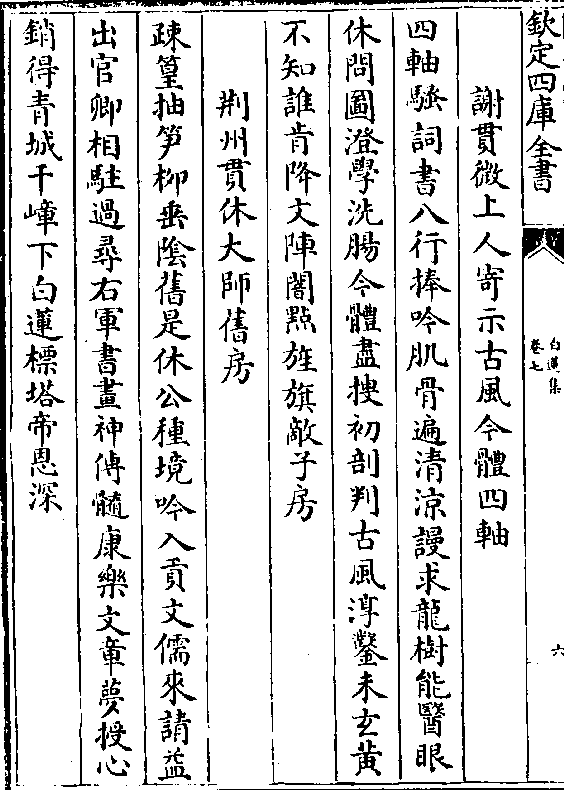 欽定四庫全書
白蓮集
卷七
六
謝貫微上人寄示古風今體四軸
四軸騷詞書八行捧吟肌骨遍清涼謾求龍樹能醫眼
休問圖澄學洗腸今體盡搜初剖判古風淳鑿未玄黄
不知誰肯降文陣闇點旌旗敵子房
荆州貫休大師舊房
疎篁抽笋栁垂陰舊是休公種境吟入貢文儒來請益
出官卿相駐過尋右軍書畫神傳髓康樂文章夢授心
銷得青城千嶂下白蓮標塔帝恩深